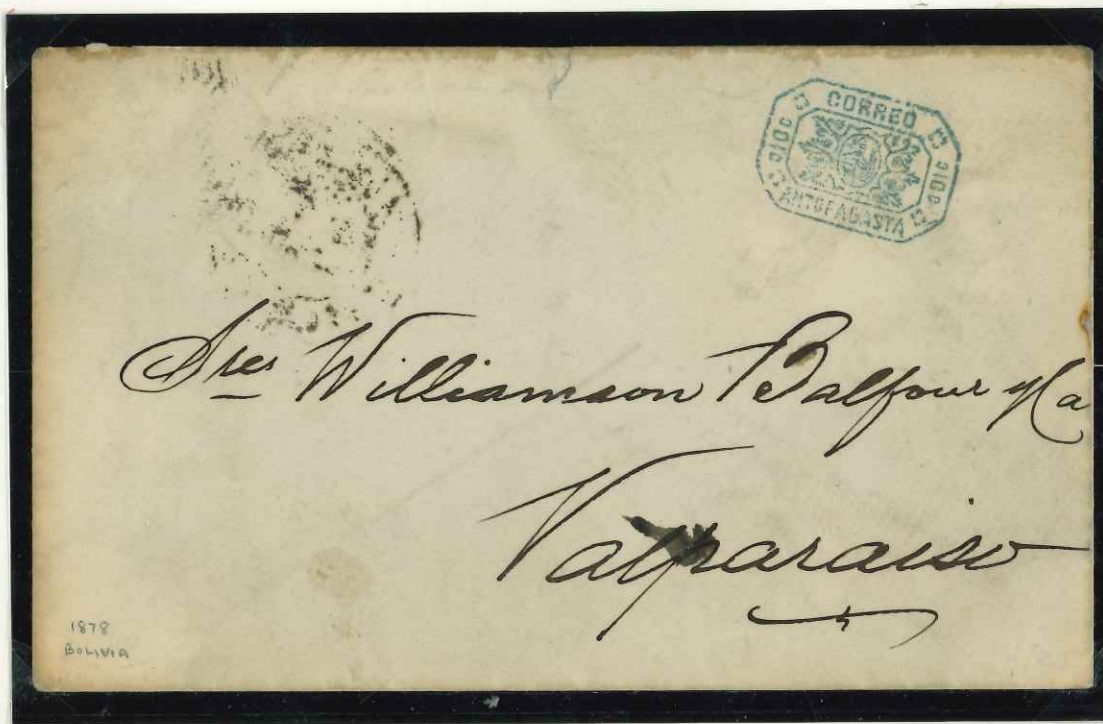 CORREO
10c 10c
ANTOFAGASTA
Sres Williamson Balfour y Ca
Valparaiso
1878
BOLIVIA